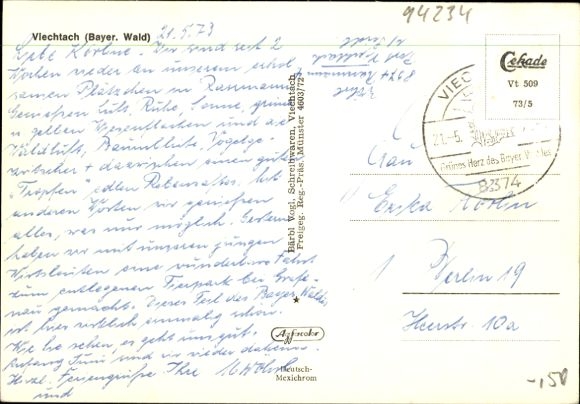 94234
Viechtach (Bayer. Wald) 21.5.73
Wir sind seit 2
Wochen wieder an unserem erhol-
samen Plätzchen in
Genießen Luft, Ruhe, Sonne, grüne
u gelben Wiesenflächen und a.e.
Waldluft, Baumblüte, Vogelge-
zwitscher + dazwischen einen guten
"Tropfen" edlen Rebensaftes. Mit
anderen Worten wir genießen
alles, was nur möglich. Gestern
haben wir mit unseren jungen
Wirtsleuten eine wunderbare Fahrt
zum entlegenen Tierpark bei Grafe-
nau gemacht. Dieser Teil des Bayer. Waldes
ist hier wirklich einmalig schön.
Wie Sie sehen, es geht uns gut.
Anfang Juni sind wir wieder daheim.
Herzl. Feriengrüße Ihre
und
Bärbl Vogl, Schreibwaren, Viechtach
Freigeg. Reg.-Präs. Münster 4603/72
Agfacolor
Deutsch-
Mexichrom
Cekade
Vt 509
73/5
VIECH
21.-5.
Grünes Herz des Bayer. Waldes
8374
Frau
Erika
1 Berlin 19
Heerstr. 10a
-,50